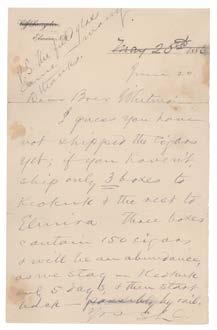 Elmira,
P.S. The field glass
came. Many
thanks.
May 25th 1886
June 20
Dear Bro. Whitmo
I guess you have
not shipped the cigars
yet; if you haven't,
ship only 3 boxes to
Keokuk & the rest to
Elmira. Three boxes
contain 150 cigars,
& will be an abundance,
as we stay in Keokuk
only 5 days, & then start
back — by rail.
Yrs SLC